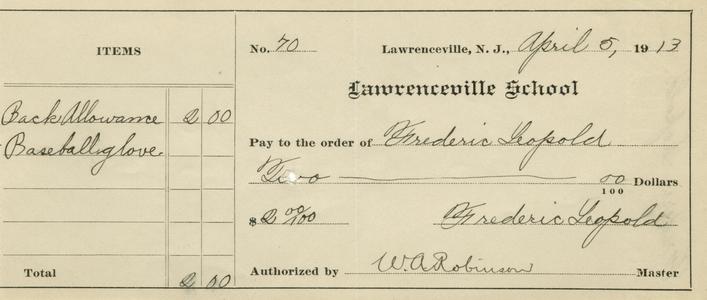 ITEMS
Back Allowance 2 00
Baseball glove.
Total 2 00
No. 70 Lawrenceville, N. J., April 5, 1913
Lawrenceville School
Pay to the order of Frederic Leopold
Two 00/100 Dollars
$ 2 00/100 Frederic Leopold
Authorized by W.A. Robinson Master